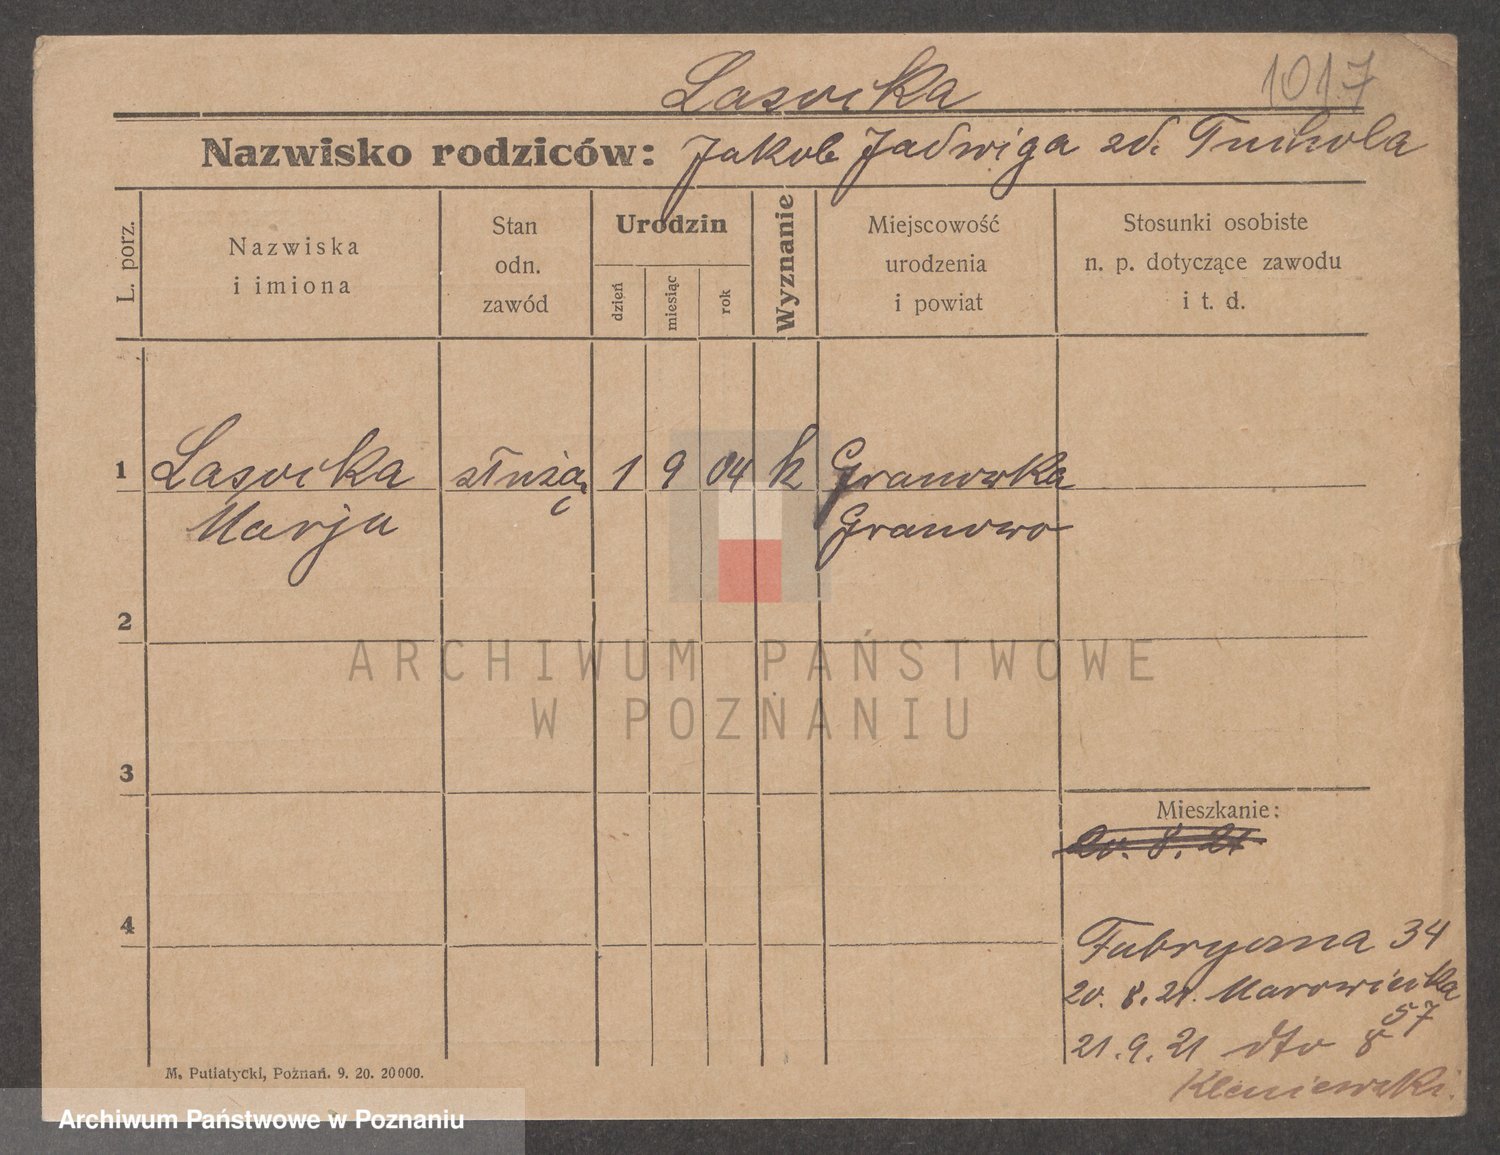 Lasocka
1017
Nazwisko rodziców: Jakob Jadwiga zd. Tuchola
L. porz.
Nazwiska i imiona
Stan odn. zawód
Urodzin
dzień
miesiąc
rok
Wyznanie
Miejscowość urodzenia i powiat
Stosunki osobiste n. p. dotyczące zawodu i t. d.
1 Lasocka służąc 1 9 04 k Granówka
Marja Granowo
2
3
Mieszkanie:
20. 8. 21
4
Fabryczna 34
20. 8. 21.
57
21. 9. 21 dto 8
M. Putiatycki, Poznań. 9. 20. 20000.
ARCHIWUM PAŃSTWOWE
W POZNANIU
Archiwum Państwowe w Poznaniu